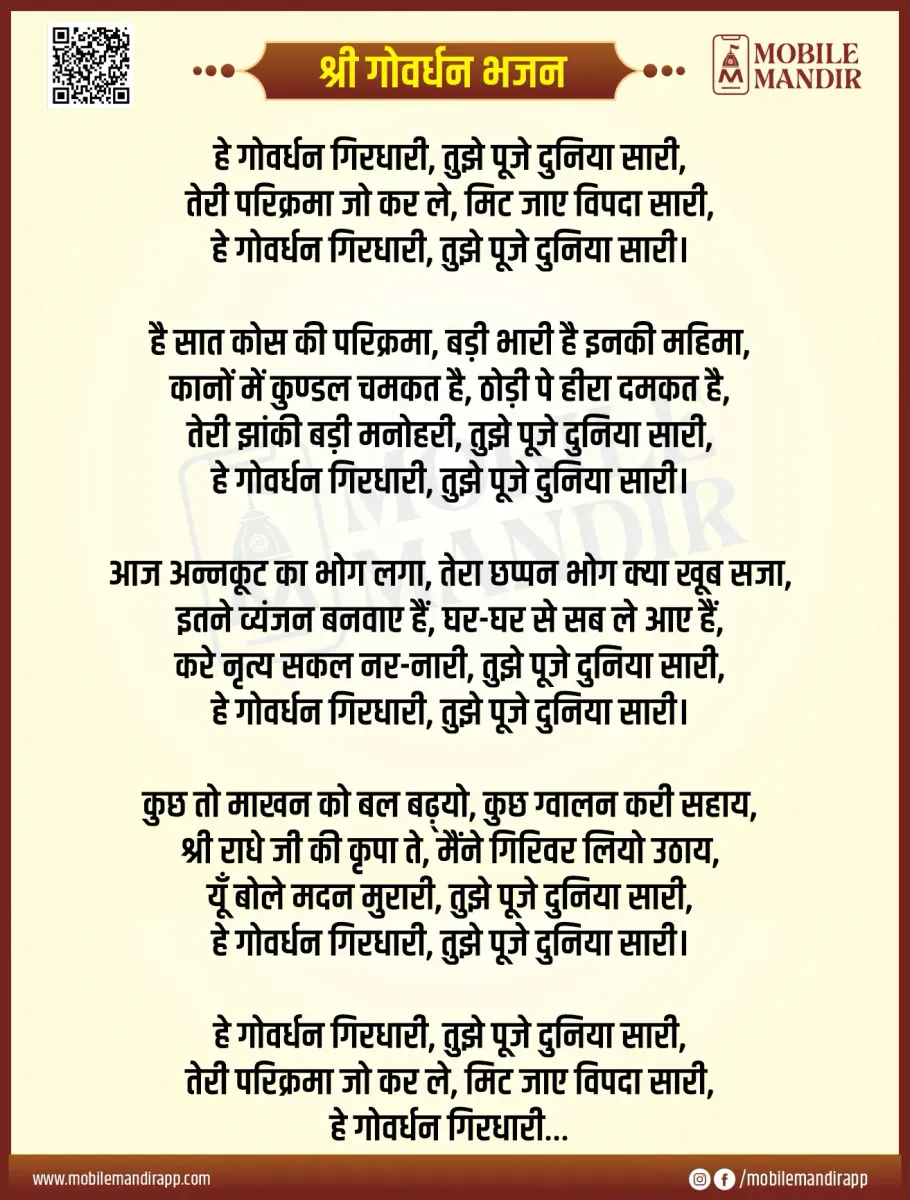 श्री गोवर्धन भजन
MOBILE
MANDIR
हे गोवर्धन गिरधारी, तुझे पूजे दुनिया सारी,
तेरी परिक्रमा जो कर ले, मिट जाए विपदा सारी,
हे गोवर्धन गिरधारी, तुझे पूजे दुनिया सारी।
है सात कोस की परिक्रमा, बड़ी भारी है इनकी महिमा,
कानों में कुण्डल चमकत है, ठोड़ी पे हीरा दमकत है,
तेरी झांकी बड़ी मनोहरी, तुझे पूजे दुनिया सारी,
हे गोवर्धन गिरधारी, तुझे पूजे दुनिया सारी।
आज अन्नकूट का भोग लगा, तेरा छप्पन भोग क्या खूब सजा,
इतने व्यंजन बनवाए हैं, घर-घर से सब ले आए हैं,
करे नृत्य सकल नर-नारी, तुझे पूजे दुनिया सारी,
हे गोवर्धन गिरधारी, तुझे पूजे दुनिया सारी।
कुछ तो माखन को बल बढ़्यो, कुछ ग्वालन करी सहाय,
श्री राधे जी की कृपा ते, मैंने गिरिवर लियो उठाय,
यूँ बोले मदन मुरारी, तुझे पूजे दुनिया सारी,
हे गोवर्धन गिरधारी, तुझे पूजे दुनिया सारी।
हे गोवर्धन गिरधारी, तुझे पूजे दुनिया सारी,
तेरी परिक्रमा जो कर ले, मिट जाए विपदा सारी,
हे गोवर्धन गिरधारी...
MOBILE
MANDIR
www.mobilemandirapp.com
/mobilemandirapp